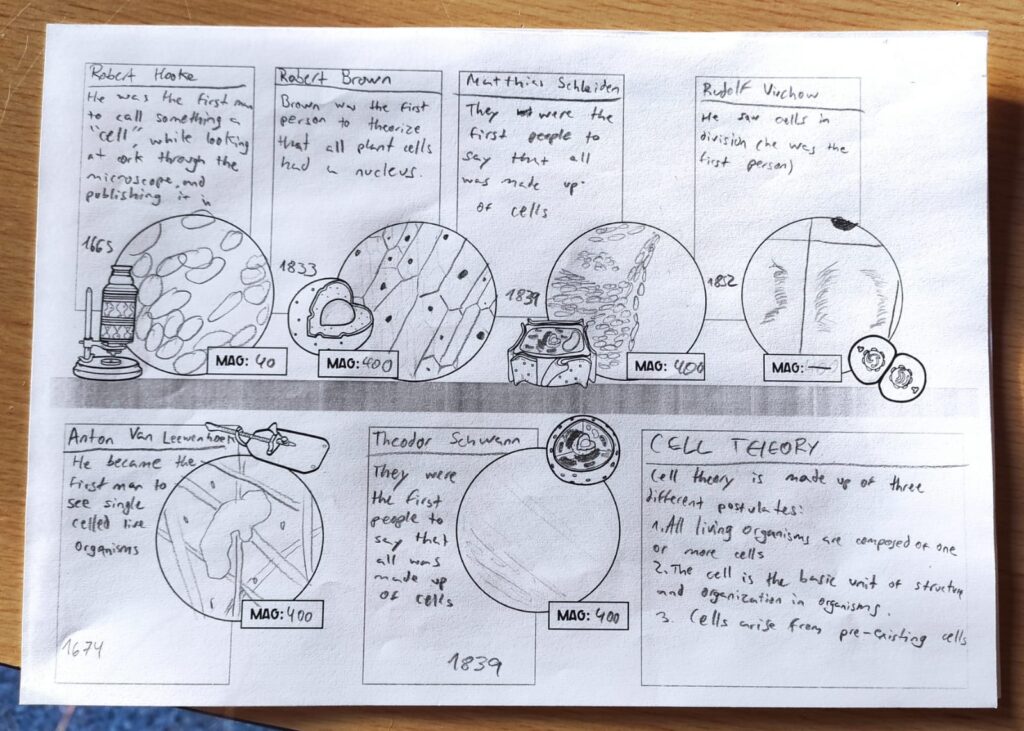 Robert Hooke
He was the first man
to call something a
"cell", while looking
at cork through the
microscope, and
publishing it in
1665
MAG: 40
Robert Brown
Brown was the first
person to theorize
that all plant cells
had a nucleus.
1833
MAG: 400
Matthias Schleiden
They were the
first people to
say that all
was made up
of cells
1839
MAG: 400
Rudolf Virchow
He saw cells in
division (he was the
first person)
1852
MAG:
Anton Van Leewenhoek
He became the
first man to
see single
celled live
organisms
1674
MAG: 400
Theodor Schwann
They were
the first
people to
say that
all was
made up
of cells
1839
MAG: 400
CELL THEORY
Cell theory is made up of three
different postulates:
1. All living organisms are composed of one
or more cells
2. The cell is the basic unit of structure
and organization in organisms.
3. Cells arise from pre-existing cells